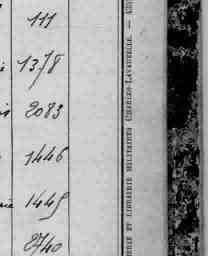 111
1378
2083
1446
1445
2740
ÉRIE ET LIBRAIRIE MILITAIRES CHARLES-LAVAUZELLE. —